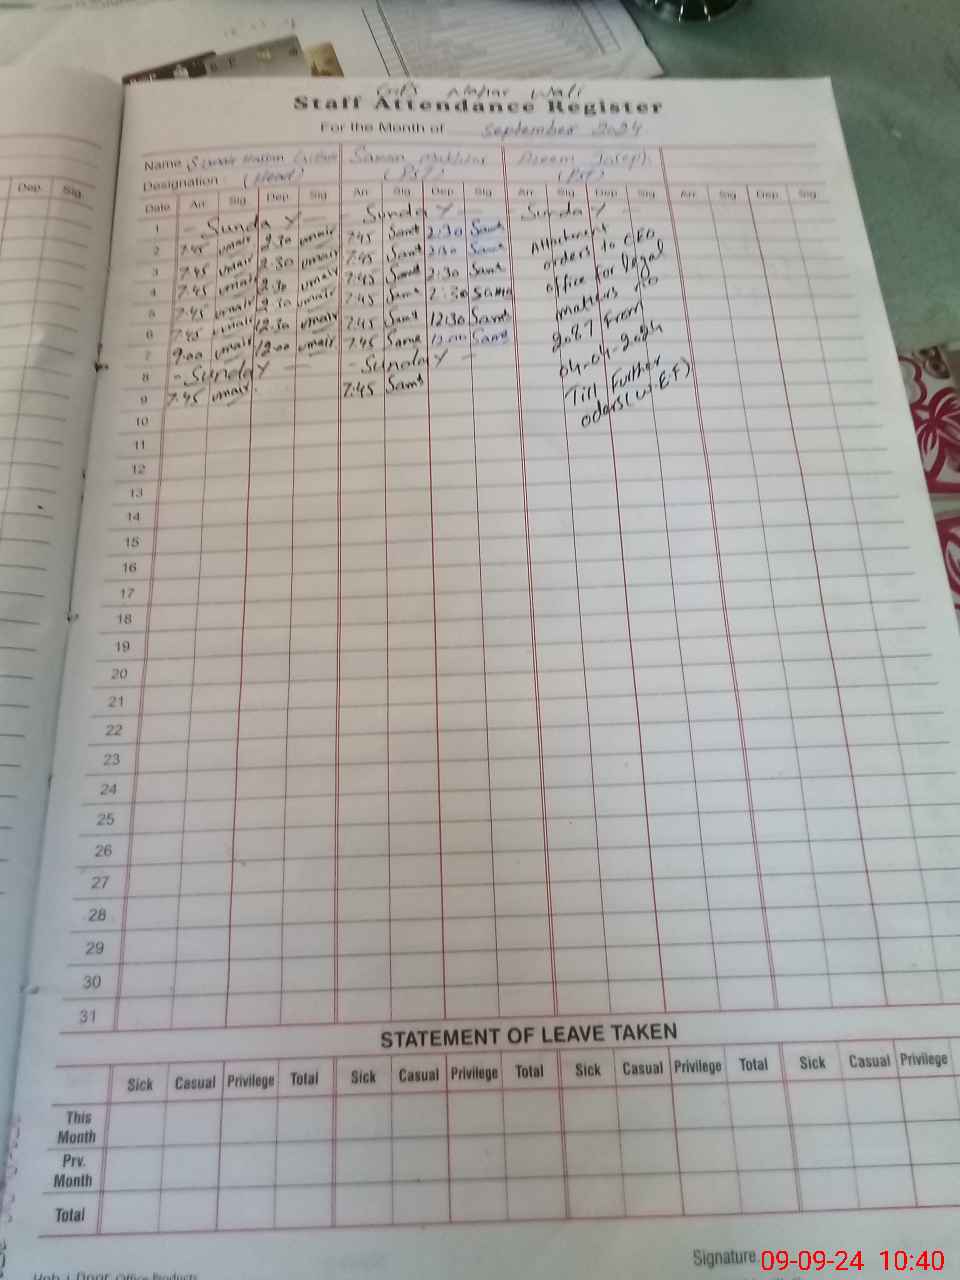 Nahar Wali
Staff Attendance Register
For the Month of September 2024
Name Hassan Saman Azeem
Designation (Head) (PST) (PST)
Date Arr. Sig. Dep. Sig. Arr. Sig. Dep. Sig. Arr. Sig. Dep. Sig. Arr. Sig. Dep. Sig.
1 - Sunday - - Sunday - Sunday -
2 7:45 umair 2:30 umair 7:45 Sam 2:30 Sam Attachment
3 7:45 umair 2:30 umair 7:45 Sam 2:30 Sam orders in CEO
4 7:45 umair 2:30 umair 7:45 Sam 2:30 Sam office for legal
5 7:45 umair 2:30 umair 7:45 Sam 2:30 Sam matters no
6 7:45 umair 12:30 umair 7:45 Sam 12:30 Sam 2087 From
7 9:00 umair 12:00 umair 7:45 Sam 12:00 Sam 04-04-2024
8 - Sunday - - Sunday - Till Further
9 7:45 umair 7:45 Sam oders (W.E.F)
10
11
12
13
14
15
16
17
18
19
20
21
22
23
24
25
26
27
28
29
30
31
STATEMENT OF LEAVE TAKEN
Sick Casual Privilege Total Sick Casual Privilege Total Sick Casual Privilege Total Sick Casual Privilege
This Month
Prv. Month
Total
Signature
Office Products
09-09-24 10:40
Dep. Sig.